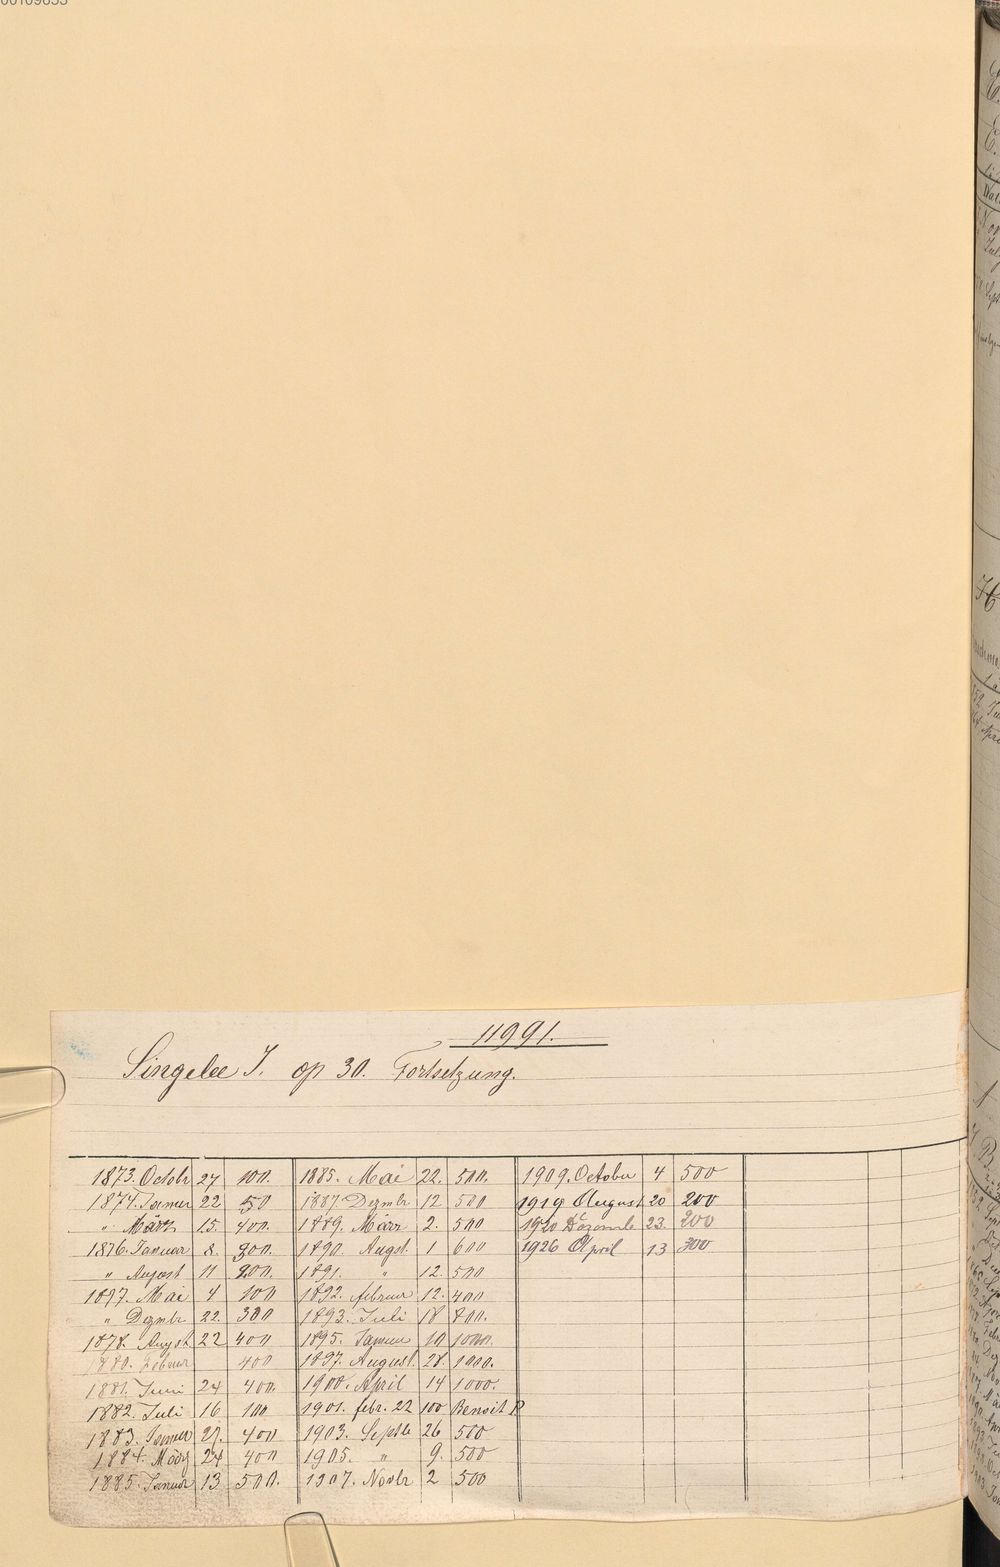 11991.
Singelee J. op 30. Fortsetzung.
1873. Octobr 27 100.
1874. Januar 22 50
" März 15. 400.
1876. Januar 8. 300.
" August 11 200.
1877. Mai 4 100
" Dezmbr 22. 300
1878. August 22 400
1880. Februar 400
1881. Juni 24 400.
1882. Juli 16 100
1883. Januar 27. 400
1884. März 24 400
1885. Januar 13 500.
1885. Mai 22. 500.
1887 Dezmbr 12 500
1889. März 2. 500
1890. Augst. 1 600
1891. " 12. 500
1892. februar 12. 400
1893. Juli 18 800.
1895. Januar 10 1000.
1897. August. 28. 1000.
1900. April 14 1000.
1901. febr. 22 100 Benoit P
1903. Septb 26 500
1905. " 9. 500
1907. Novbr 2 500
1909. October 4 500
1919 August 20 200
1920 Dezemb 23. 200
1926 April 13 300